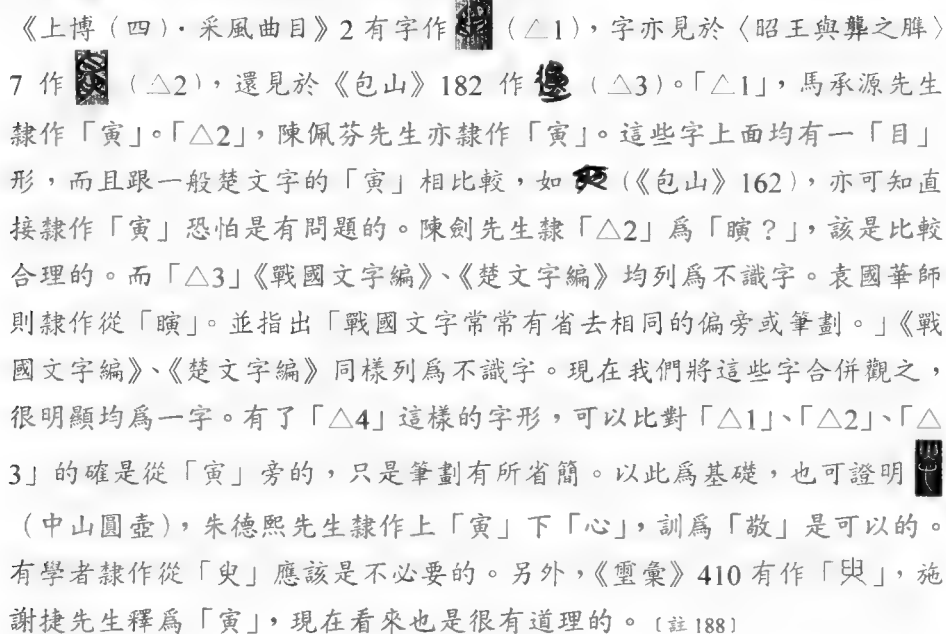 《上博（四）·采風曲目》2 有字作（△1），字亦見於〈昭王與龔之脽〉
7 作（△2），還見於《包山》182 作（△3）。「△1」，馬承源先生
隸作「寅」。「△2」，陳佩芬先生亦隸作「寅」。這些字上面均有一「目」
形，而且跟一般楚文字的「寅」相比較，如（《包山》162），亦可知直
接隸作「寅」恐怕是有問題的。陳劍先生隸「△2」爲「瞚？」，該是比較
合理的。而「△3」《戰國文字編》、《楚文字編》均列爲不識字。袁國華師
則隸作從「瞚」。並指出「戰國文字常常有省去相同的偏旁或筆劃。」《戰
國文字編》、《楚文字編》同樣列爲不識字。現在我們將這些字合併觀之，
很明顯均爲一字。有了「△4」這樣的字形，可以比對「△1」、「△2」、「△
3」的確是從「寅」旁的，只是筆劃有所省簡。以此爲基礎，也可證明
（中山圓壺），朱德熙先生隸作上「寅」下「心」，訓爲「敬」是可以的。
有學者隸作從「臾」應該是不必要的。另外，《璽彙》410 有作「」，施
謝捷先生釋爲「寅」，現在看來也是很有道理的。〔註 188〕